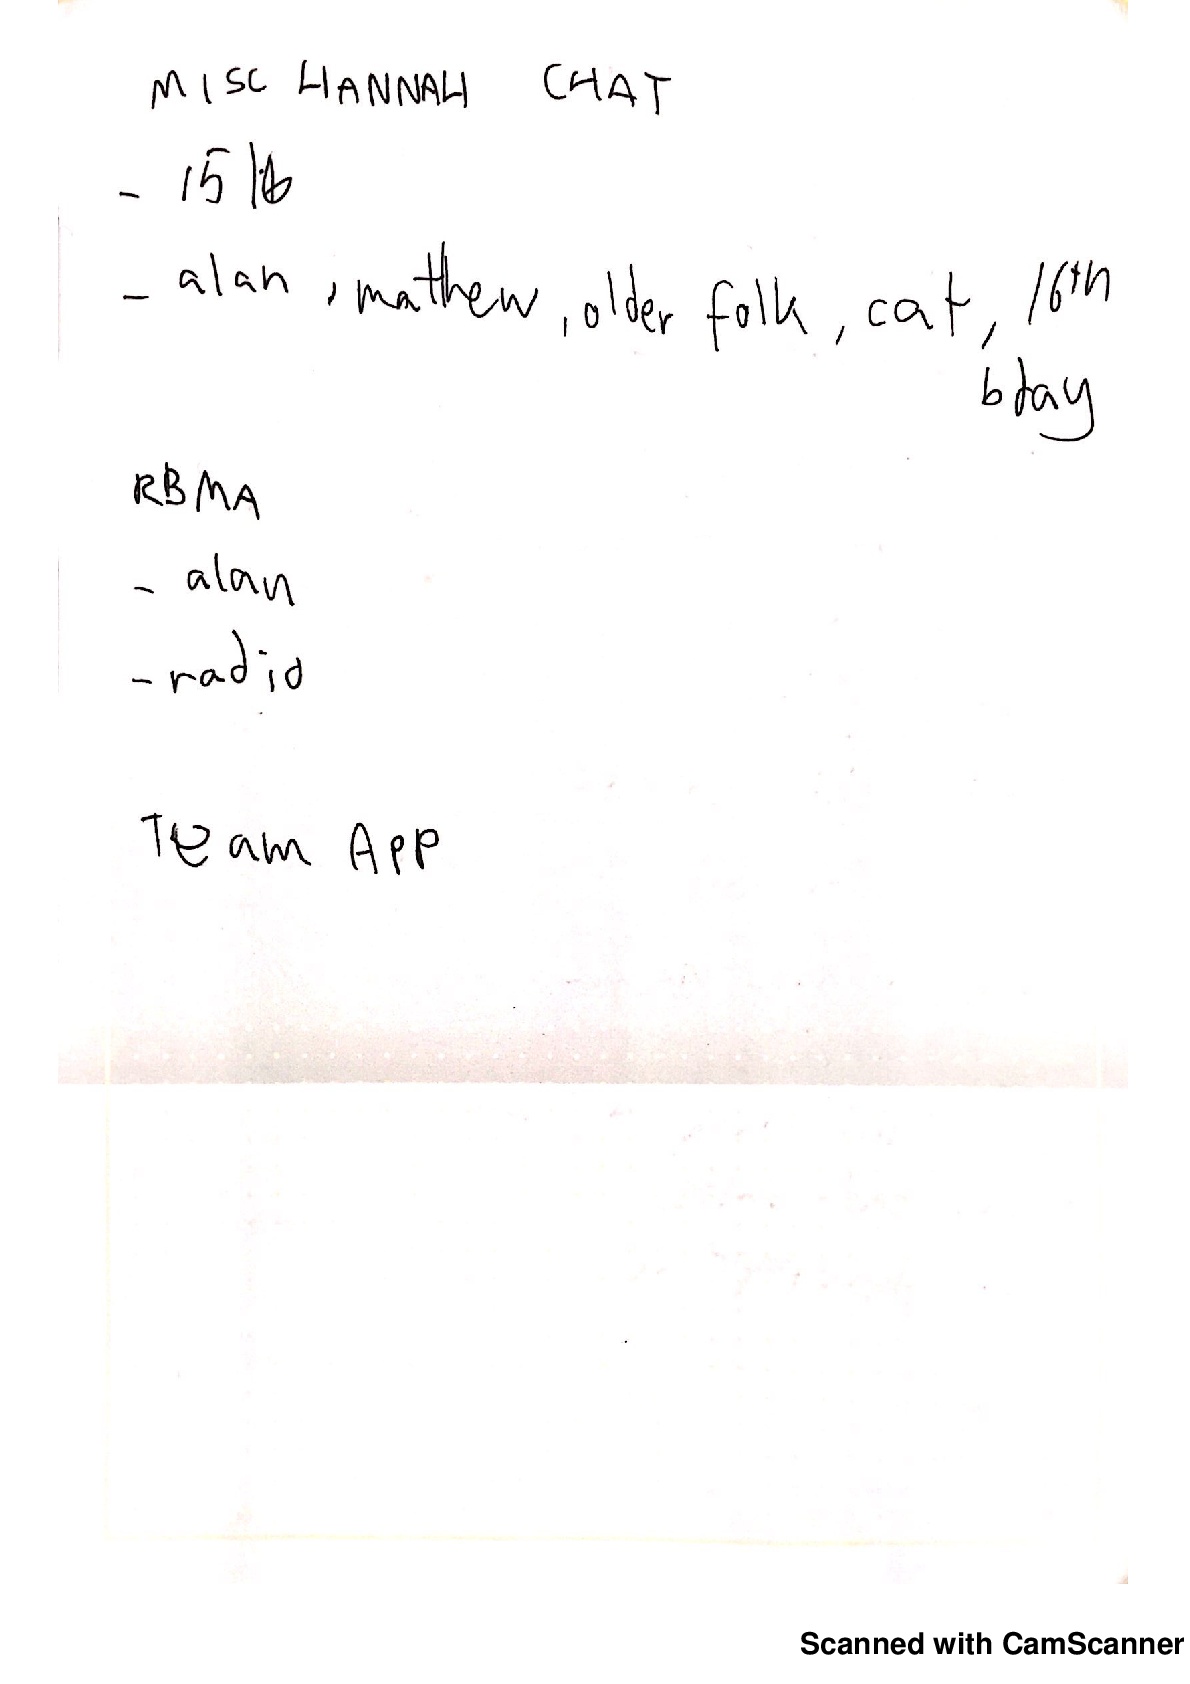 MISC HANNAH CHAT
- 15 lb
- alan, mathew, older folk, cat, 16th
bday
RBMA
- alan
- radio
Team App
Scanned with CamScanner